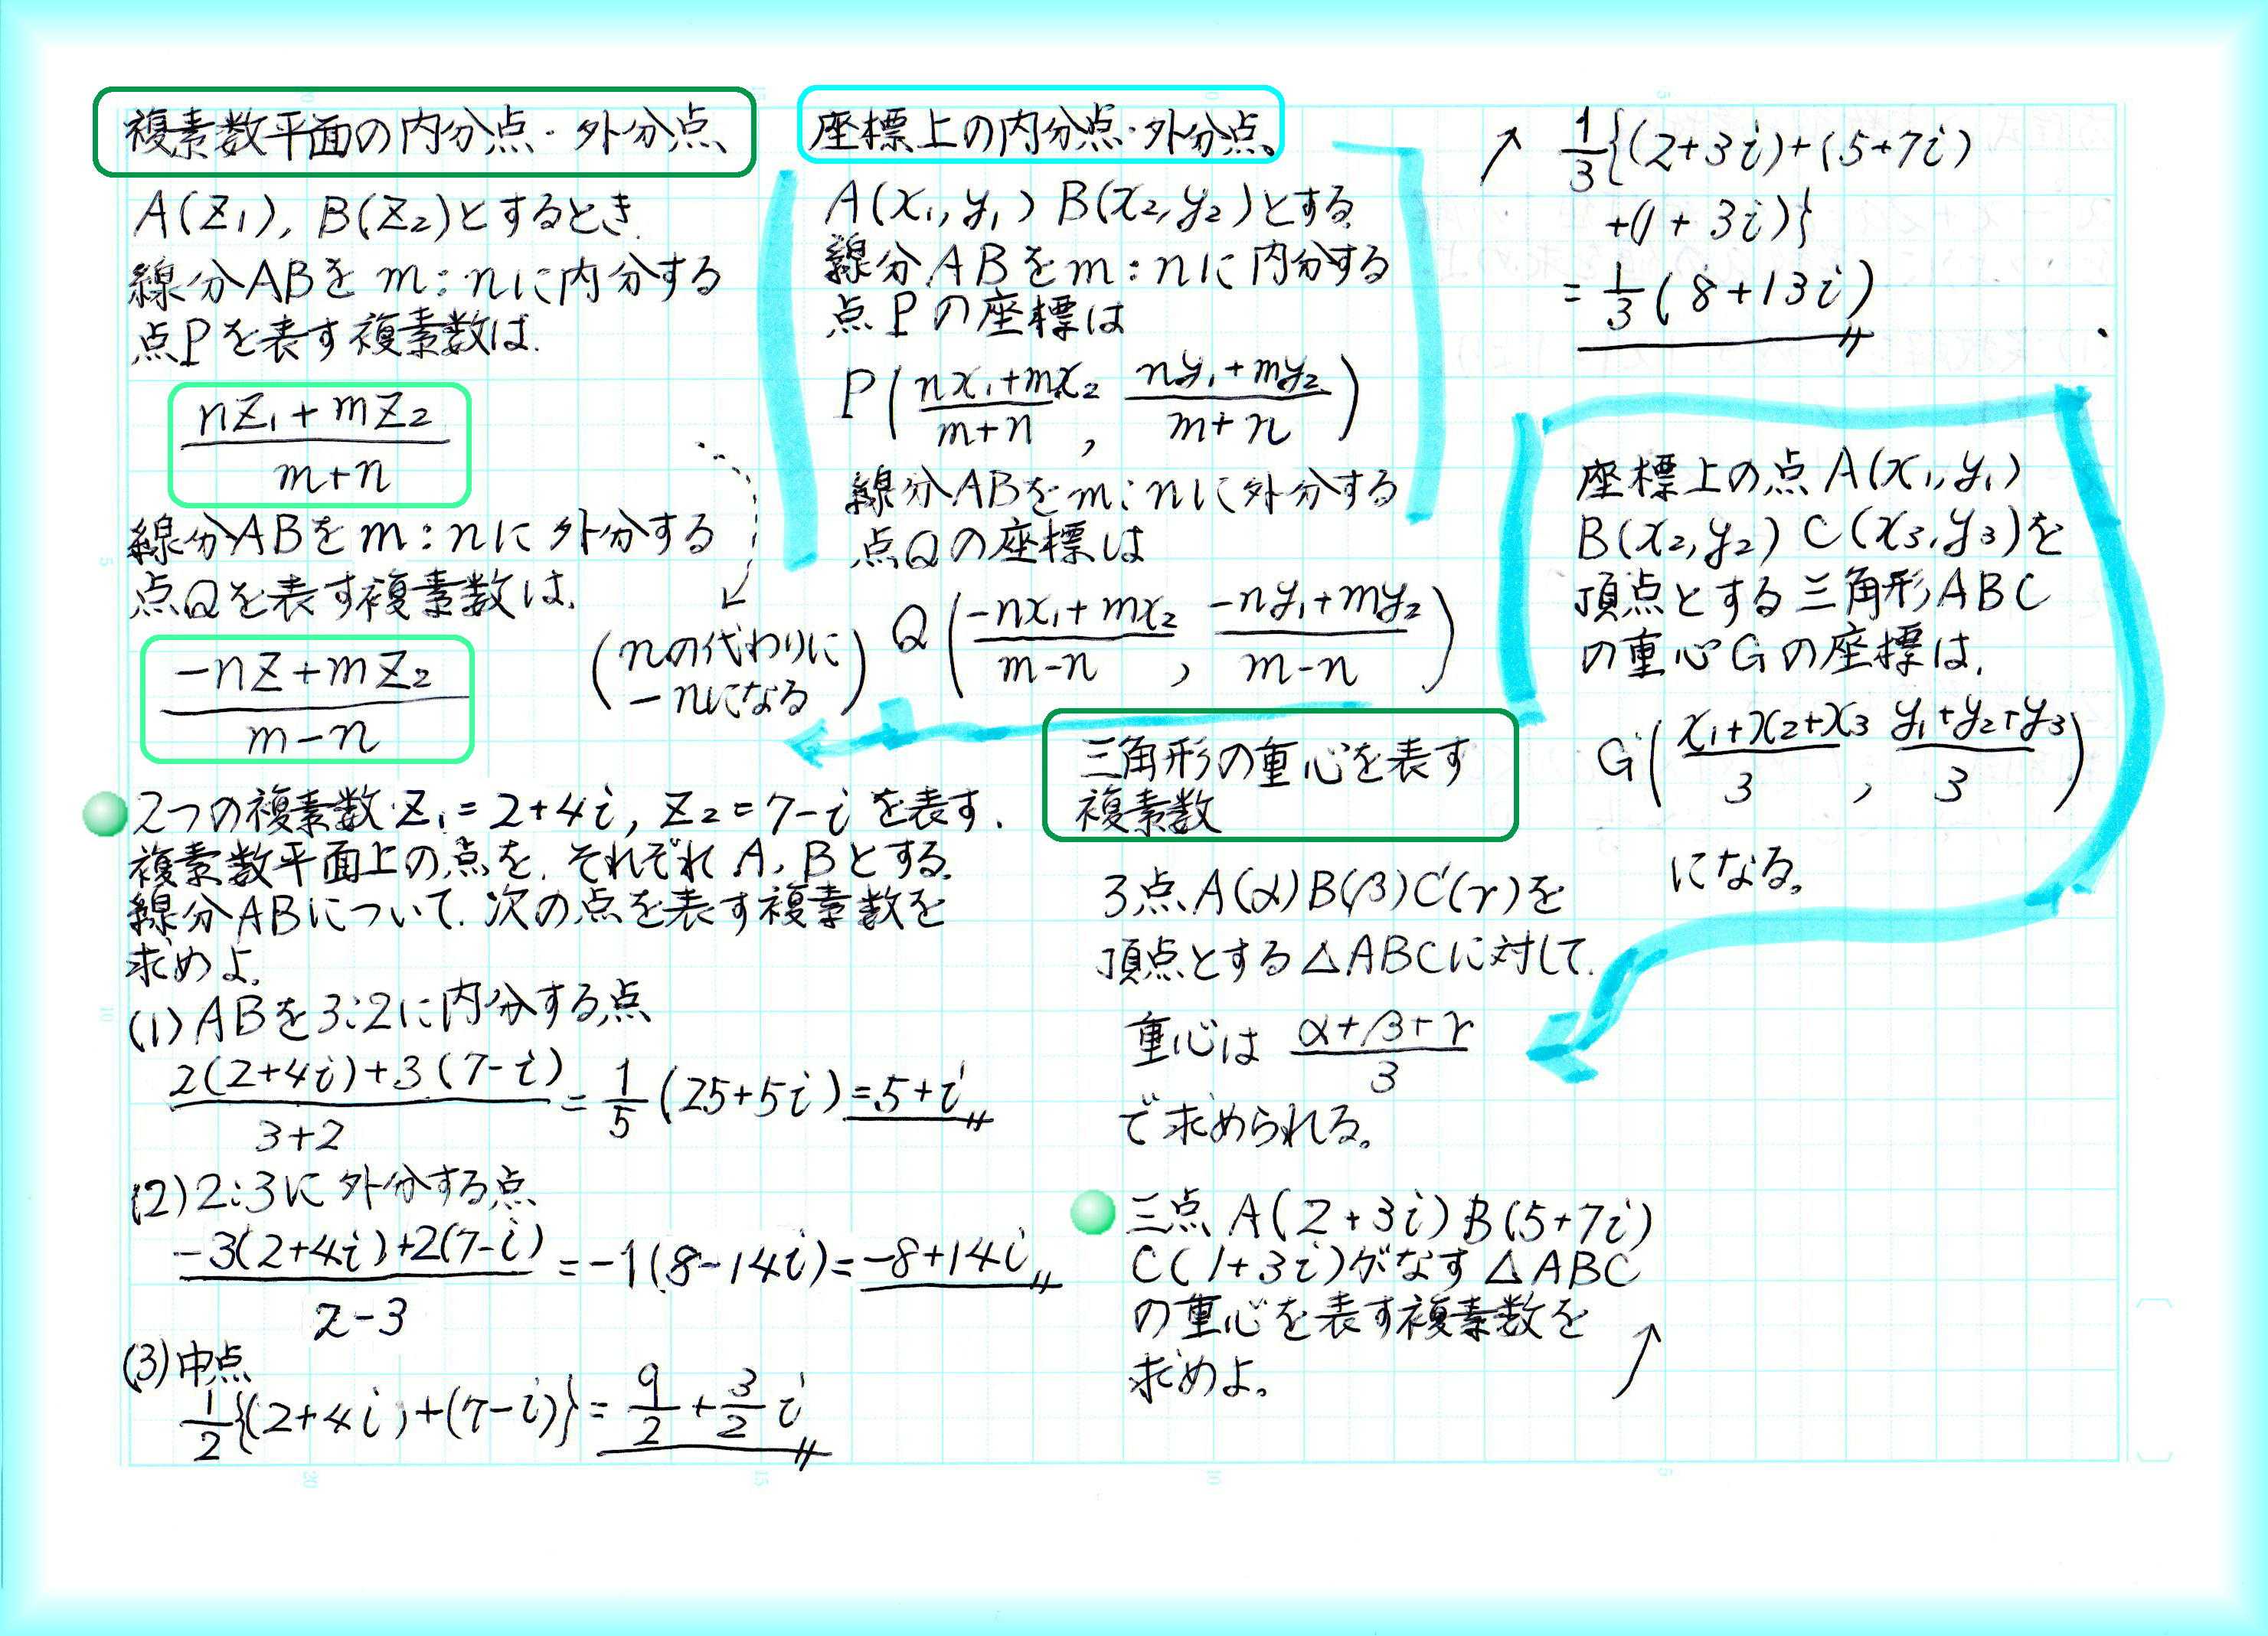 複素数平面の内分点・外分点、
A(Z₁), B(Z₂)とするとき、
線分ABを m:nに内分する
点Pを表す複素数は、
nZ₁+mZ₂
m+n
線分ABをm:nに外分する
点Qを表す複素数は、
-nZ+mZ₂
m-n
(nの代わりに
-nになる)
2つの複素数Z₁=2+4i, Z₂=7-iを表す.
複素数平面上の点を、それぞれA, Bとする。
線分ABについて、次の点を表す複素数を
求めよ。
(1)ABを3:2に内分する点
2(2+4i)+3(7-i)/3+2 = 1/5(25+5i)=5+i
(2)2:3に外分する点
-3(2+4i)+2(7-i)/2-3 =-1(8-14i)=-8+14i
(3)中点
1/2{(2+4i)+(7-i)}=9/2+3/2i
座標上の内分点・外分点。
A(x₁,y₁) B(x₂,y₂)とする
線分ABをm:nに内分する
点Pの座標は
P(nx₁+mx₂/m+n , ny₁+my₂/m+n)
線分ABをm:nに外分する
点Qの座標は
Q(-nx₁+mx₂/m-n , -ny₁+my₂/m-n)
三角形の重心を表す
複素数
3点A(α)B(β)C(γ)を
頂点とする△ABCに対して、
重心は α+β+γ/3
で求められる。
三点 A(2+3i)B(5+7i)
C(1+3i)がなす△ABC
の重心を表す複素数を
求めよ。
↗ 1/3{(2+3i)+(5+7i)
+(1+3i)}
=1/3(8+13i)
座標上の点A(x₁,y₁)
B(x₂,y₂) C(x₃,y₃)を
頂点とする三角形ABC
の重心Gの座標は、
G(x₁+x₂+x₃/3 , y₁+y₂+y₃/3)
になる。
5
10
20
15
10
5